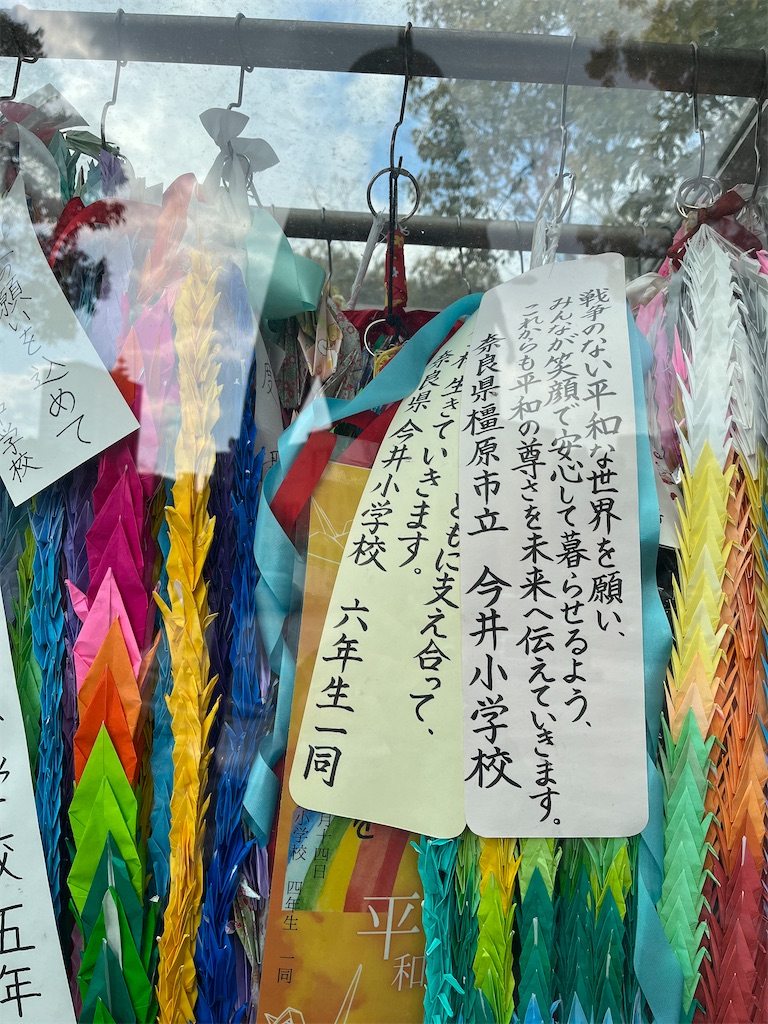 戦争のない平和な世界を願い、
みんなが笑顔で安心して暮らせるよう、
これからも平和の尊さを未来へ伝えていきます。
奈良県橿原市立 今井小学校
ともに支え合って、
生きていきます。
奈良県 今井小学校 六年生一同
願いを込めて
小学校
校 五年
を
月十四日
小学校 四年生 一同
平和